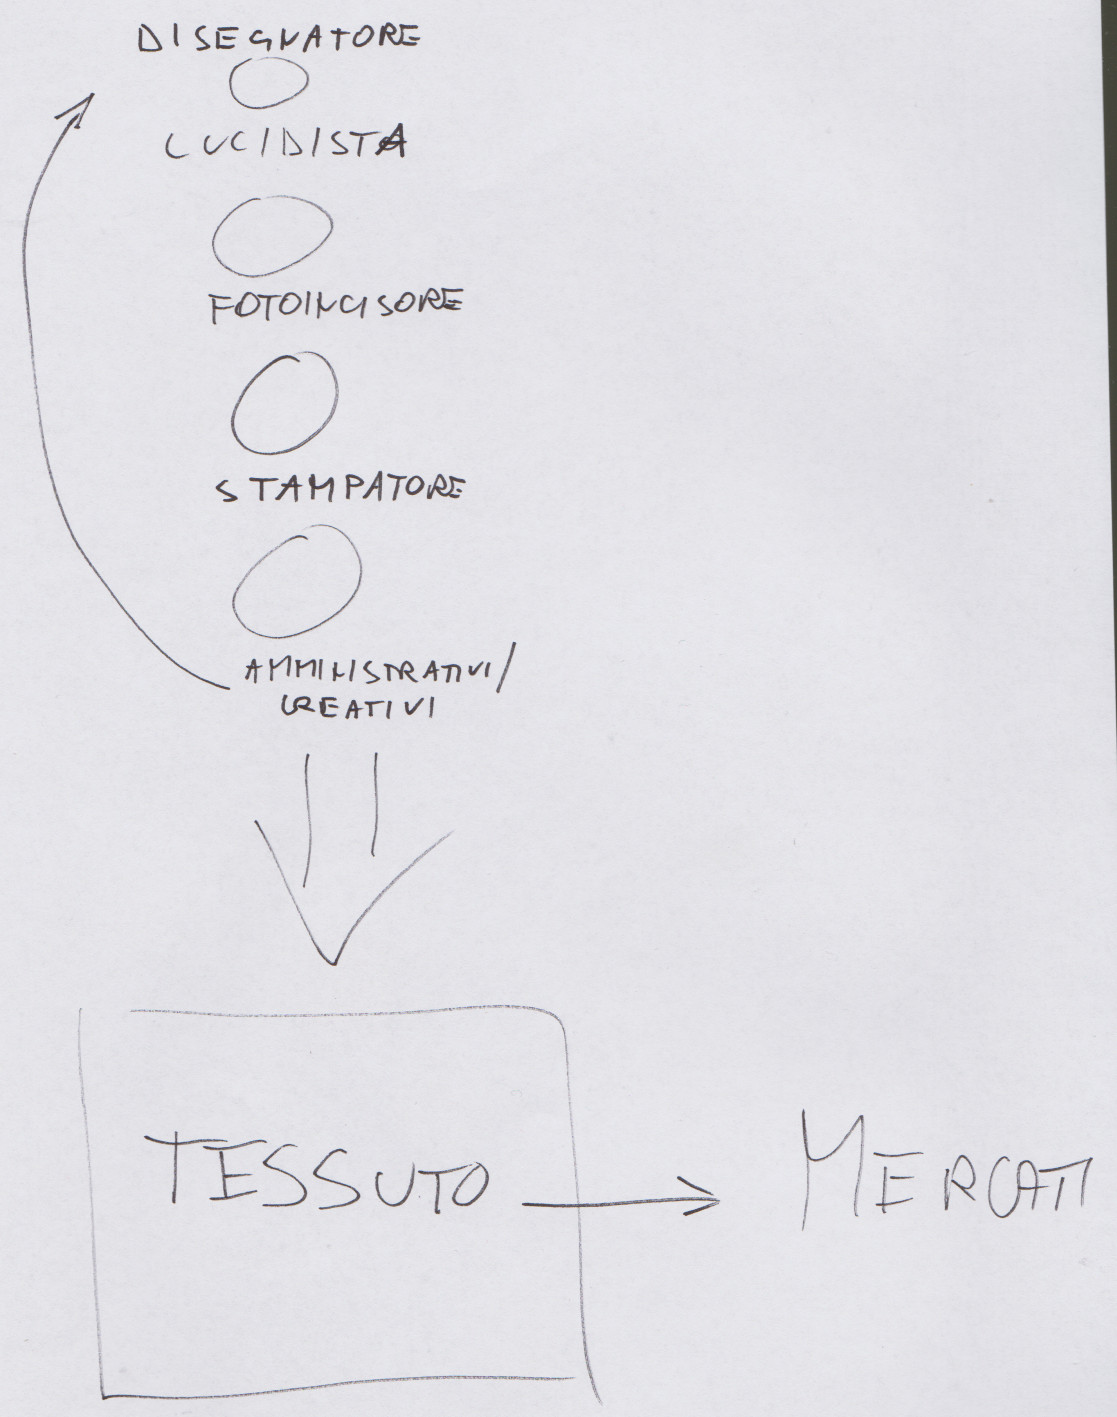 DISEGNATORE
LUCIDISTA
FOTOINCISORE
STAMPATORE
AMMINISTRATIVI/
CREATIVI
TESSUTO
MERCATI